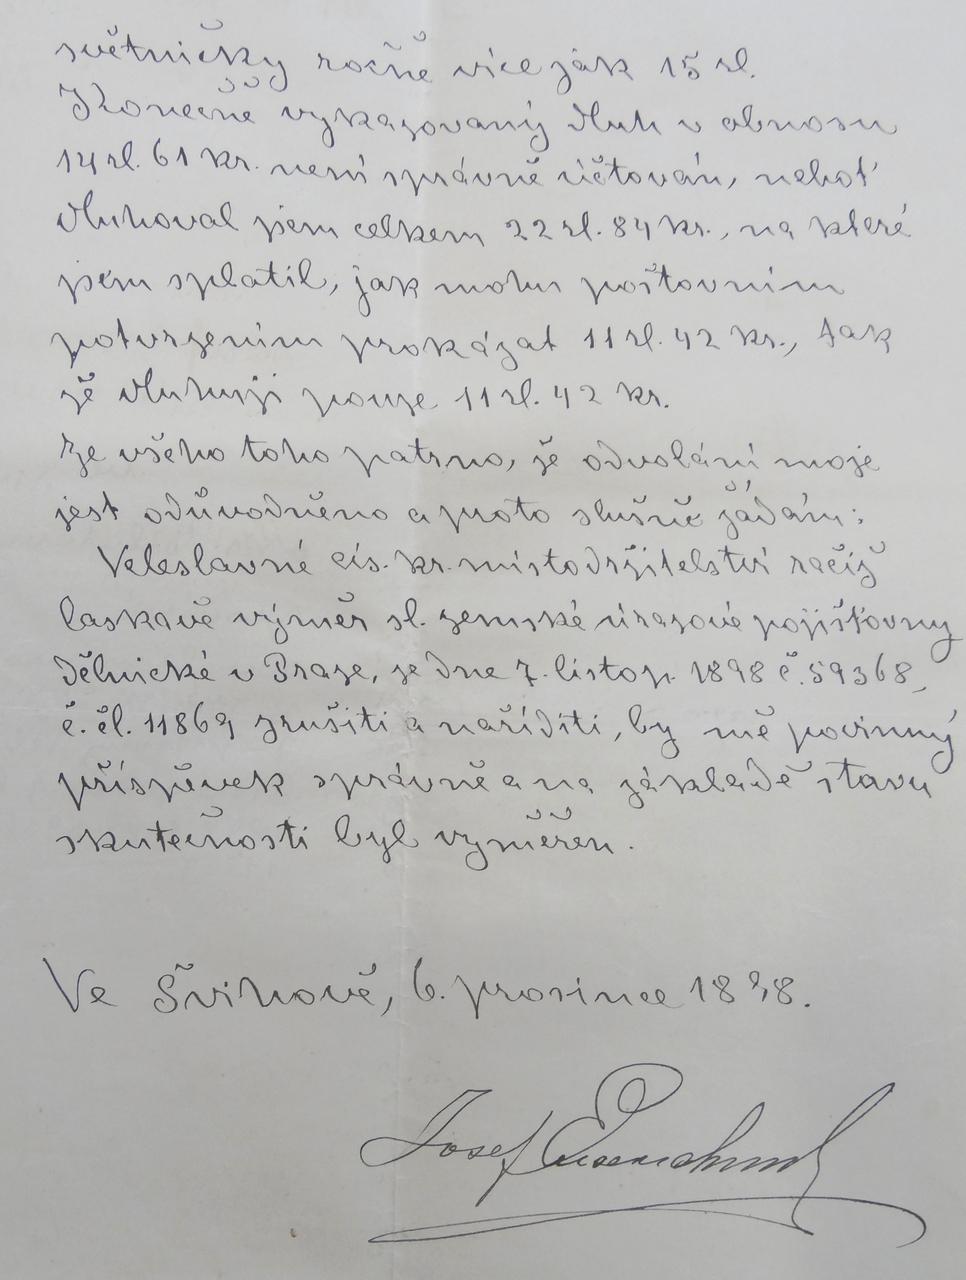 světničky ročně více ják 15 zl.
Konečně vykazovaný dluh v obnosu
14 zl. 61 kr. není správně účtován, neboť
dluhoval jsem celkem 22 zl. 84 kr., na které
jsem splatil, jak mohu poštovním
potvrzením prokázat 11 zl. 42 kr., tak
že dluhuji pouze 11 zl. 42 kr.
Ze všeho toho patrno, že odvolání moje
jest odůvodněno a proto slušně žádám:
Veleslavné cís. kr. místodržitelství račiž
laskavě výměr sl. zemské úrazové pojišťovny
dělnické v Praze, ze dne 7. listop. 1898 č. 59368,
č. čl. 11869 zrušiti a naříditi, by mě povinný
příspěvek správně a na základě stavu
skutečnosti byl vyměřen.
Ve Švihově, 6. prosince 1898.
Josef